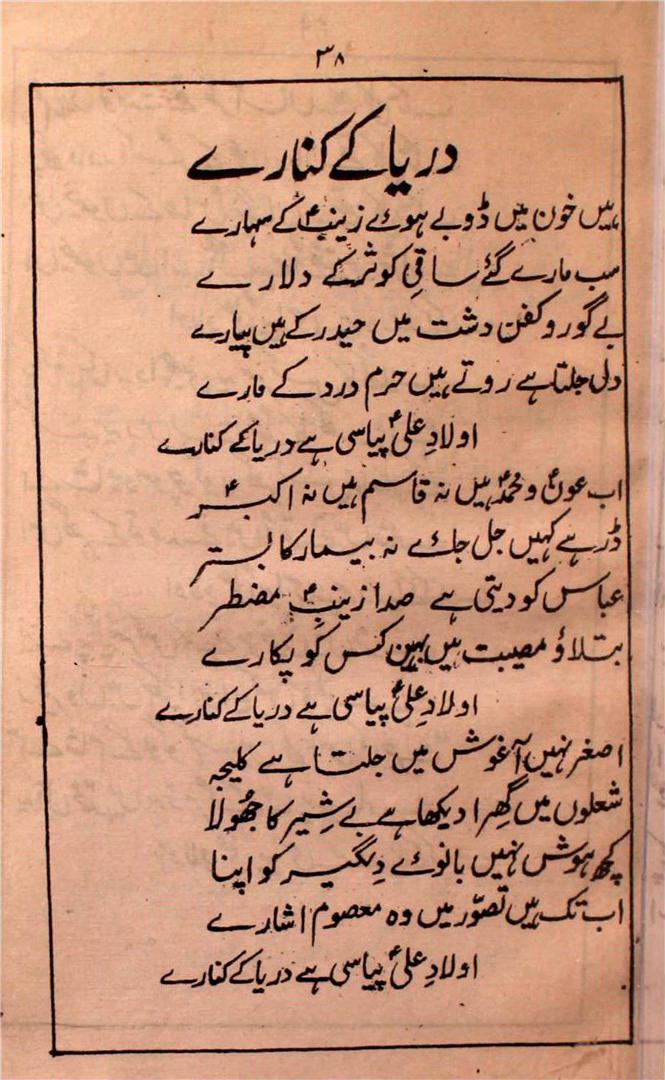 ۳۸
دریا کے کنارے
ہیں خون میں ڈوبے ہوئے زینبؑ کے سہارے
سب مارے گئے ساقیِ کوثرؑ کے دلارے
بے گور و کفن دشت میں حیدر کے ہیں پیارے
دل جلتا ہے روتے ہیں حرم درد کے مارے
اولادِ علیؑ پیاسی ہے دریا کے کنارے
اب عونؑ و محمدؑ ہیں نہ قاسم ہیں نہ اکبرؑ
ڈر ہے کہیں جل جائے نہ بیمار کا بستر
عباس کو دیتی ہے صدا زینبؑ مضطر
بتلاؤ مصیبت میں بہن کس کو پکارے
اولادِ علیؑ پیاسی ہے دریا کے کنارے
اصغر نہیں آغوش میں جلتا ہے کلیجہ
شعلوں میں گِھرا دیکھا ہے بے شِیر کا جُھولا
کچھ ہوش نہیں بانوئے دِلگیر کو اپنا
اب تک ہیں تصوّر میں وہ معصوم اشارے
اولادِ علیؑ پیاسی ہے دریا کے کنارے